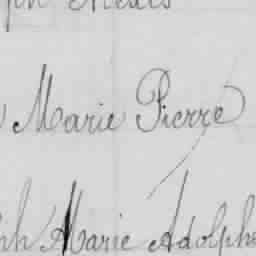 Marie Pierre
ph Marie Adolphe